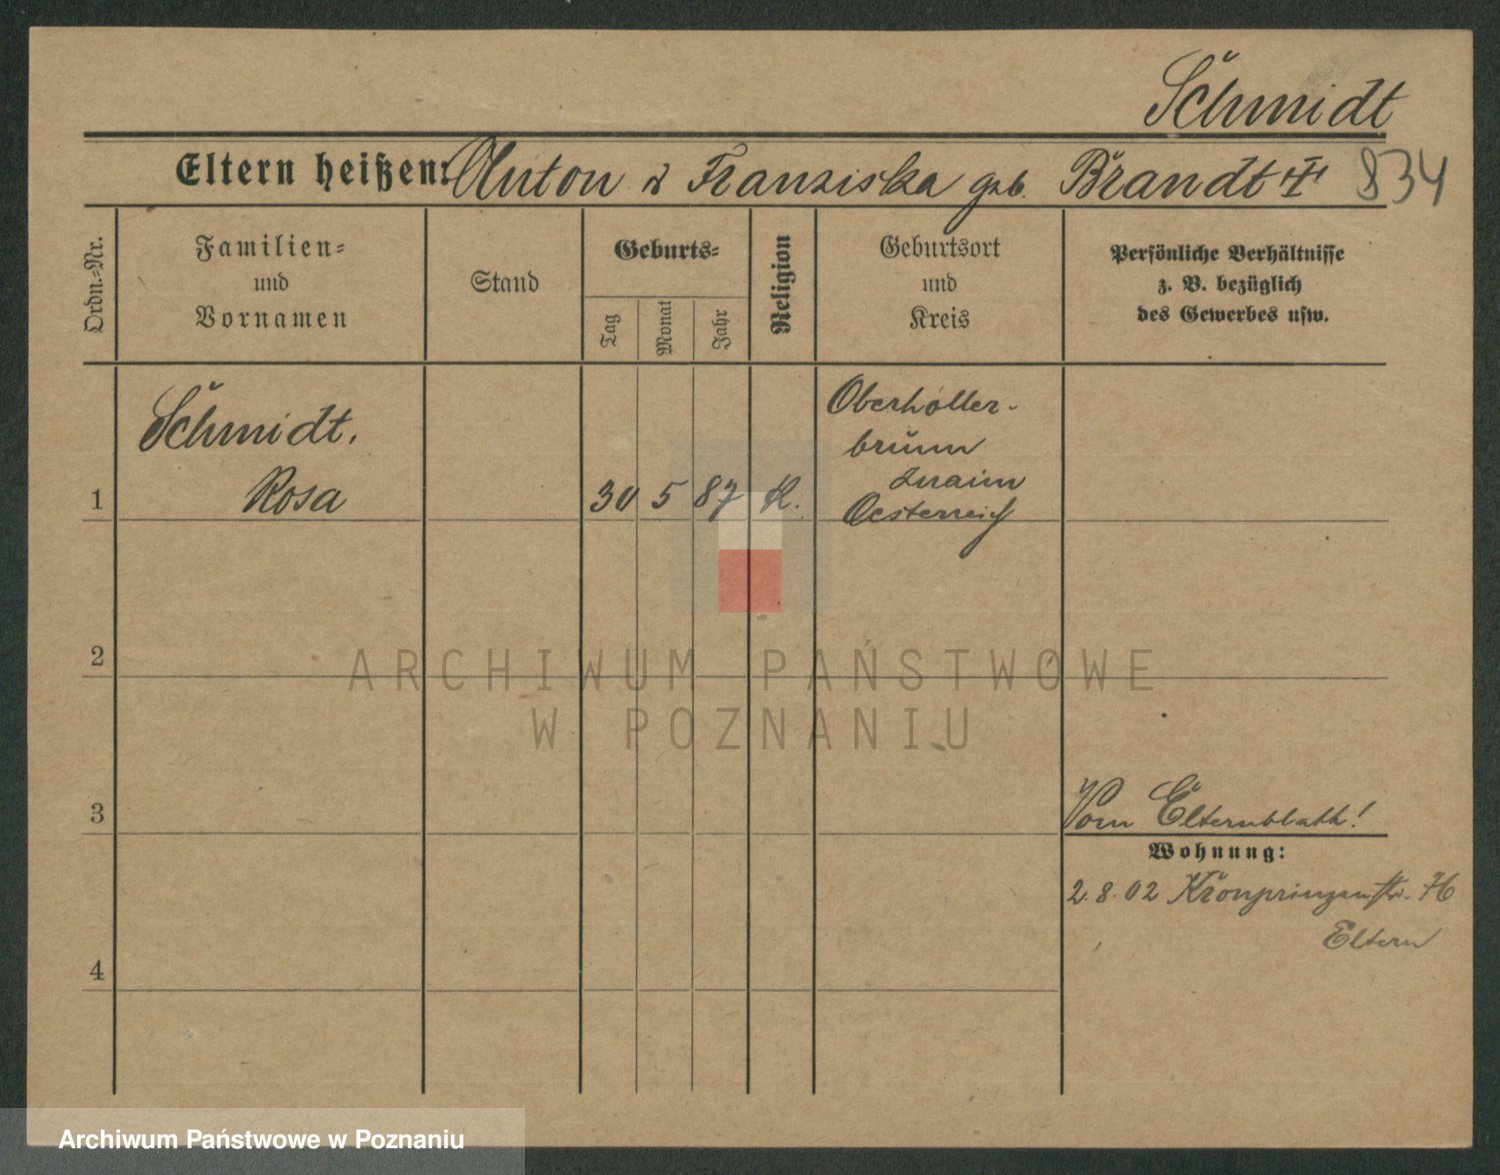 Schmidt
Eltern heißen: Anton & Franziska geb. Brandt 834
Ordn.-Nr.
Familien-
und
Vornamen
Stand
Geburts-
Tag
Monat
Jahr
Religion
Geburtsort
und
Kreis
Persönliche Verhältnisse
z. B. bezüglich
des Gewerbes usw.
Schmidt,
1 Rosa 30 5 87 K.
Oberholler-
brunn
Znaim
Oesterreich
2
ARCHIWUM PAŃSTWOWE
W POZNANIU
3
Vom Elternblatt!
Wohnung:
2.8.02 Kronprinzenstr. 76
Eltern
4
Archiwum Państwowe w Poznaniu